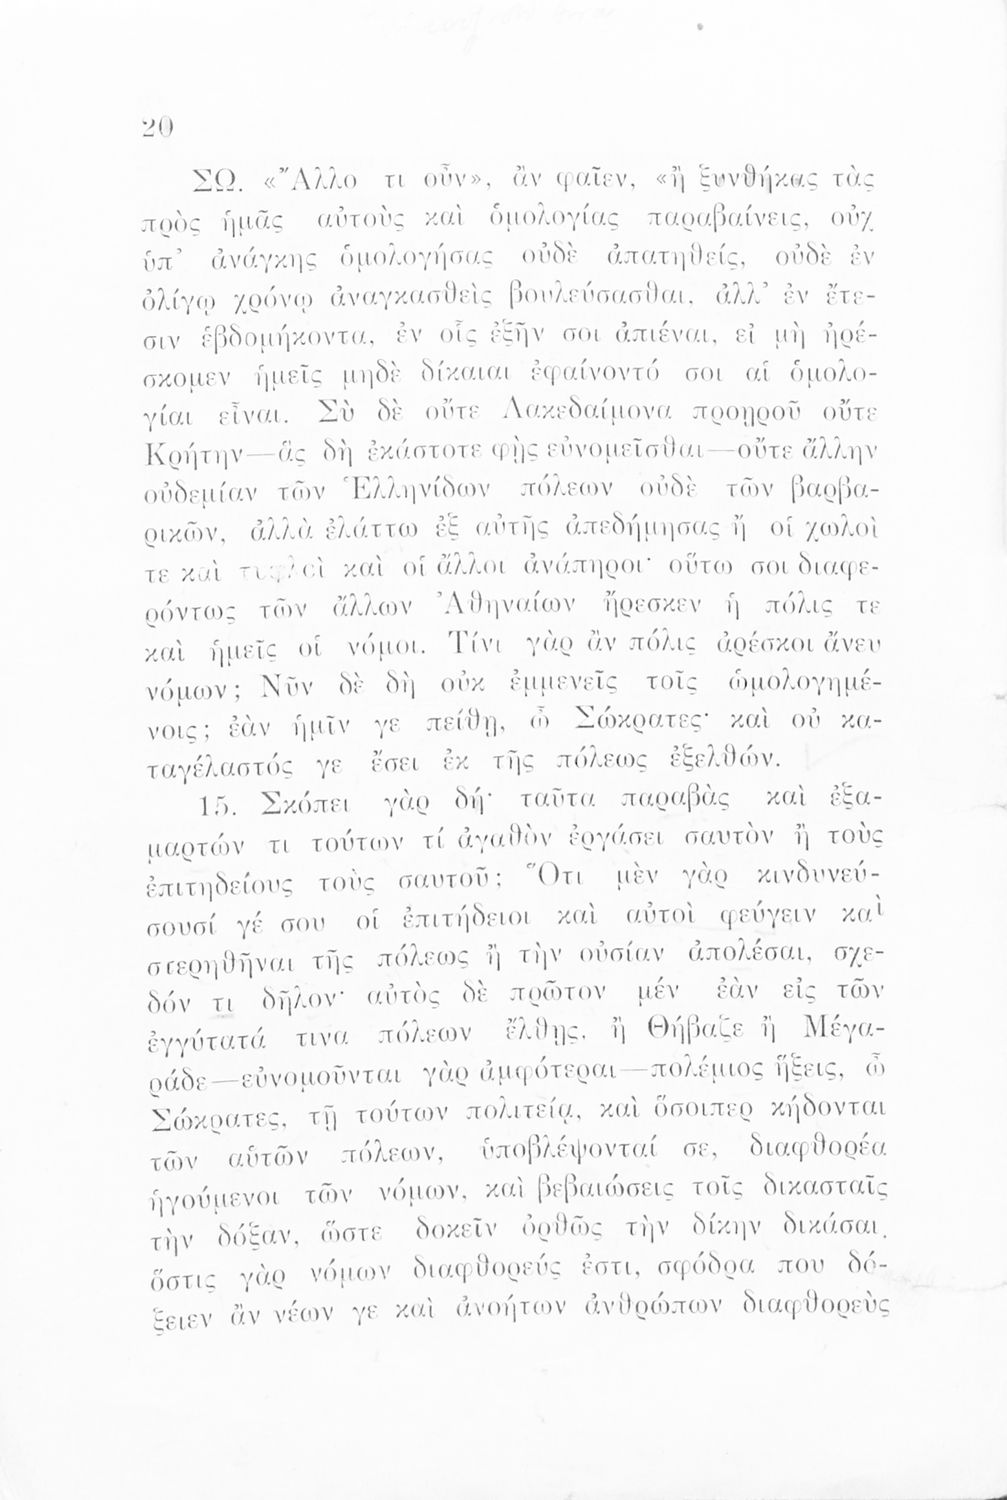 20
ΣΩ. «Ἄλλο τι οὖν», ἂν φαῖεν, «ἢ ξυνθήκας τὰς
πρὸς ἡμᾶς αὐτοὺς καὶ ὁμολογίας παραβαίνεις, οὐχ
ὑπ’ ἀνάγκης ὁμολογήσας οὐδὲ ἀπατηθείς, οὐδὲ ἐν
ὀλίγῳ χρόνῳ ἀναγκασθεὶς βουλεύσασθαι, ἀλλ’ ἐν ἔτε-
σιν ἑβδομήκοντα, ἐν οἷς ἐξῆν σοι ἀπιέναι, εἰ μὴ ἠρέ-
σκομεν ἡμεῖς μηδὲ δίκαιαι ἐφαίνοντό σοι αἱ ὁμολο-
γίαι εἶναι. Σὺ δὲ οὔτε Λακεδαίμονα προῃροῦ οὔτε
Κρήτην—ἃς δὴ ἑκάστοτε φῂς εὐνομεῖσθαι—οὔτε ἄλλην
οὐδεμίαν τῶν Ἑλληνίδων πόλεων οὐδὲ τῶν βαρβα-
ρικῶν, ἀλλὰ ἐλάττω ἐξ αὐτῆς ἀπεδήμησας ἢ οἱ χωλοὶ
τε καὶ τυφλοὶ καὶ οἱ ἄλλοι ἀνάπηροι· οὕτω σοι διαφε-
ρόντως τῶν ἄλλων Ἀθηναίων ἤρεσκεν ἡ πόλις τε
καὶ ἡμεῖς οἱ νόμοι. Τίνι γὰρ ἂν πόλις ἀρέσκοι ἄνευ
νόμων; Νῦν δὲ δὴ οὐκ ἐμμενεῖς τοῖς ὡμολογημέ-
νοις; ἐὰν ἡμῖν γε πείθῃ, ὦ Σώκρατες· καὶ οὐ κα-
ταγέλαστός γε ἔσει ἐκ τῆς πόλεως ἐξελθών.
15. Σκόπει γὰρ δή· ταῦτα παραβὰς καὶ ἐξα-
μαρτών τι τούτων τί ἀγαθὸν ἐργάσει σαυτὸν ἢ τοὺς
ἐπιτηδείους τοὺς σαυτοῦ; Ὅτι μὲν γὰρ κινδυνεύ-
σουσί γέ σου οἱ ἐπιτήδειοι καὶ αὐτοὶ φεύγειν καὶ
στερηθῆναι τῆς πόλεως ἢ τὴν οὐσίαν ἀπολέσαι, σχε-
δόν τι δῆλον· αὐτὸς δὲ πρῶτον μέν ἐὰν εἰς τῶν
ἐγγύτατά τινα πόλεων ἔλθῃς, ἢ Θήβαζε ἢ Μέγα-
ράδε—εὐνομοῦνται γὰρ ἀμφότεραι—πολέμιος ἥξεις, ὦ
Σώκρατες, τῇ τούτων πολιτείᾳ, καὶ ὅσοιπερ κήδονται
τῶν αὑτῶν πόλεων, ὑποβλέψονταί σε, διαφθορέα
ἡγούμενοι τῶν νόμων, καὶ βεβαιώσεις τοῖς δικασταῖς
τὴν δόξαν, ὥστε δοκεῖν ὀρθῶς τὴν δίκην δικάσαι.
ὅστις γὰρ νόμων διαφθορεύς ἐστι, σφόδρα που δό-
ξειεν ἂν νέων γε καὶ ἀνοήτων ἀνθρώπων διαφθορεὺς